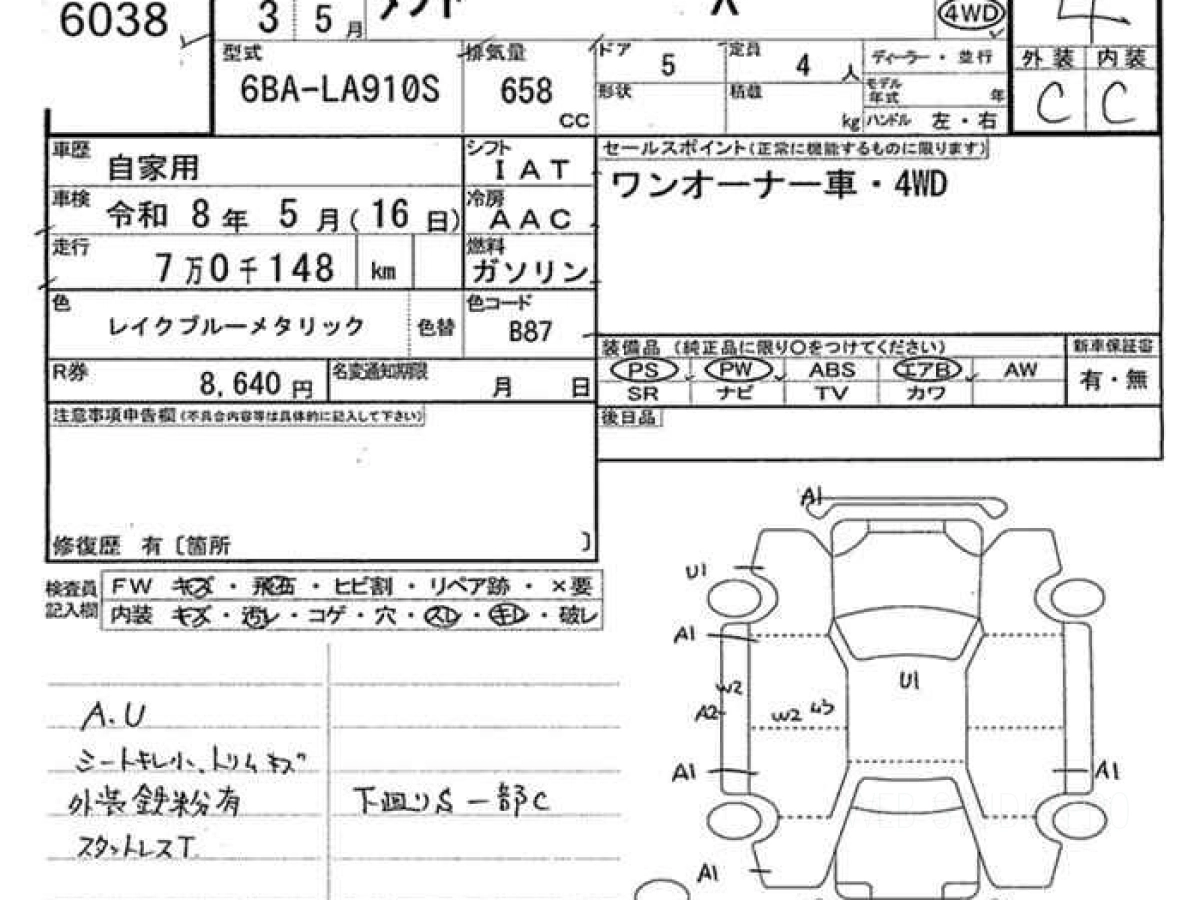 6038
3 5 月
4WD
型式 排気量 ドア 5 定員 4 人 ディーラー・並行 外装 内装
6BA-LA910S 658 CC
形状 積載 kg モデル年式 年 C C
ハンドル 左・右
車歴 自家用 シフト IAT
セールスポイント(正常に機能するものに限ります)
ワンオーナー車・4WD
車検 令和 8年 5月(16日) 冷房 AAC
走行 7万0千148 km 燃料 ガソリン
色 レイクブルーメタリック 色替 色コード B87
装備品(純正品に限り〇をつけてください) 新車保証書
PS PW ABS エアB AW 有・無
SR ナビ TV カワ
R券 8,640円 名変通知期限 月 日
注意事項申告欄(不具合内容等は具体的に記入して下さい)
後日品
修復歴 有〔箇所 〕
検査員記入欄 FW キズ・飛石・ヒビ割・リペア跡・×要
内装 キズ・汚レ・コゲ・穴・スレ・キレ・破レ
A.U
シートキレ小、トリムキズ
外装鉄粉有
スタットレスT
下廻りS一部C
A1
U1
A1
U1
W2
A2
W2 U3
A1
A1
A1